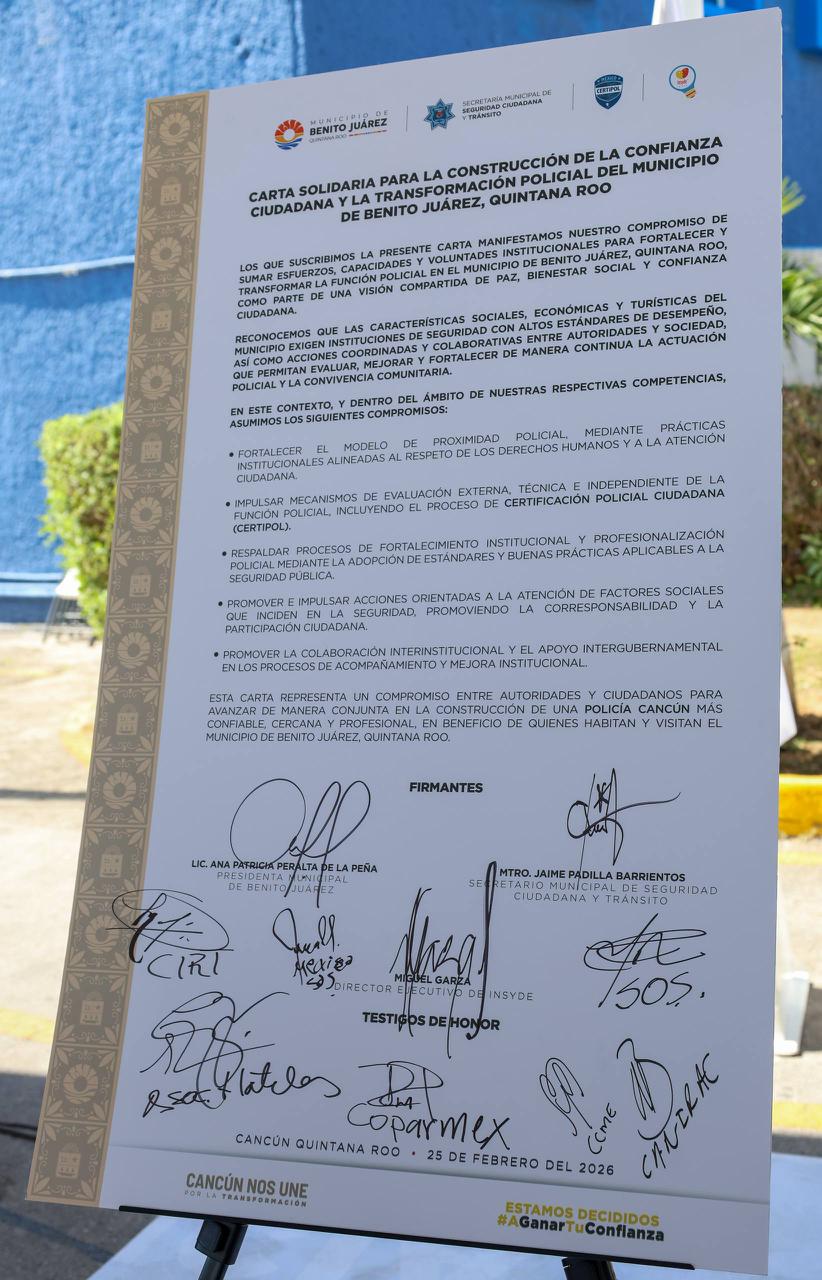 MUNICIPIO DE
BENITO JUÁREZ
QUINTANA ROO
SECRETARÍA MUNICIPAL DE
SEGURIDAD CIUDADANA
Y TRÁNSITO
MÉXICO
CERTIPOL
CARTA SOLIDARIA PARA LA CONSTRUCCIÓN DE LA CONFIANZA
CIUDADANA Y LA TRANSFORMACIÓN POLICIAL DEL MUNICIPIO
DE BENITO JUÁREZ, QUINTANA ROO
LOS QUE SUSCRIBIMOS LA PRESENTE CARTA MANIFESTAMOS NUESTRO COMPROMISO DE
SUMAR ESFUERZOS, CAPACIDADES Y VOLUNTADES INSTITUCIONALES PARA FORTALECER Y
TRANSFORMAR LA FUNCIÓN POLICIAL EN EL MUNICIPIO DE BENITO JUÁREZ, QUINTANA ROO,
COMO PARTE DE UNA VISIÓN COMPARTIDA DE PAZ, BIENESTAR SOCIAL Y CONFIANZA
CIUDADANA.
RECONOCEMOS QUE LAS CARACTERÍSTICAS SOCIALES, ECONÓMICAS Y TURÍSTICAS DEL
MUNICIPIO EXIGEN INSTITUCIONES DE SEGURIDAD CON ALTOS ESTÁNDARES DE DESEMPEÑO,
ASÍ COMO ACCIONES COORDINADAS Y COLABORATIVAS ENTRE AUTORIDADES Y SOCIEDAD,
QUE PERMITAN EVALUAR, MEJORAR Y FORTALECER DE MANERA CONTINUA LA ACTUACIÓN
POLICIAL Y LA CONVIVENCIA COMUNITARIA.
EN ESTE CONTEXTO, Y DENTRO DEL ÁMBITO DE NUESTRAS RESPECTIVAS COMPETENCIAS,
ASUMIMOS LOS SIGUIENTES COMPROMISOS:
• FORTALECER EL MODELO DE PROXIMIDAD POLICIAL, MEDIANTE PRÁCTICAS
INSTITUCIONALES ALINEADAS AL RESPETO DE LOS DERECHOS HUMANOS Y A LA ATENCIÓN
CIUDADANA.
• IMPULSAR MECANISMOS DE EVALUACIÓN EXTERNA, TÉCNICA E INDEPENDIENTE DE LA
FUNCIÓN POLICIAL, INCLUYENDO EL PROCESO DE CERTIFICACIÓN POLICIAL CIUDADANA
(CERTIPOL).
• RESPALDAR PROCESOS DE FORTALECIMIENTO INSTITUCIONAL Y PROFESIONALIZACIÓN
POLICIAL MEDIANTE LA ADOPCIÓN DE ESTÁNDARES Y BUENAS PRÁCTICAS APLICABLES A LA
SEGURIDAD PÚBLICA.
• PROMOVER E IMPULSAR ACCIONES ORIENTADAS A LA ATENCIÓN DE FACTORES SOCIALES
QUE INCIDEN EN LA SEGURIDAD, PROMOVIENDO LA CORRESPONSABILIDAD Y LA
PARTICIPACIÓN CIUDADANA.
• PROMOVER LA COLABORACIÓN INTERINSTITUCIONAL Y EL APOYO INTERGUBERNAMENTAL
EN LOS PROCESOS DE ACOMPAÑAMIENTO Y MEJORA INSTITUCIONAL.
ESTA CARTA REPRESENTA UN COMPROMISO ENTRE AUTORIDADES Y CIUDADANOS PARA
AVANZAR DE MANERA CONJUNTA EN LA CONSTRUCCIÓN DE UNA POLICÍA CANCÚN MÁS
CONFIABLE, CERCANA Y PROFESIONAL, EN BENEFICIO DE QUIENES HABITAN Y VISITAN EL
MUNICIPIO DE BENITO JUÁREZ, QUINTANA ROO.
FIRMANTES
LIC. ANA PATRICIA PERALTA DE LA PEÑA
PRESIDENTA MUNICIPAL
DE BENITO JUÁREZ
MTRO. JAIME PADILLA BARRIENTOS
SECRETARIO MUNICIPAL DE SEGURIDAD
CIUDADANA Y TRÁNSITO
CIRI
MEXICO
SOS
MIGUEL GARZA
DIRECTOR EJECUTIVO DE INSYDE
SOS.
TESTIGOS DE HONOR
Coparmex
CCME
CANIRAC
CANCÚN QUINTANA ROO • 25 DE FEBRERO DEL 2026
CANCÚN NOS UNE
POR LA TRANSFORMACIÓN
ESTAMOS DECIDIDOS
#AGanarTuConfianza